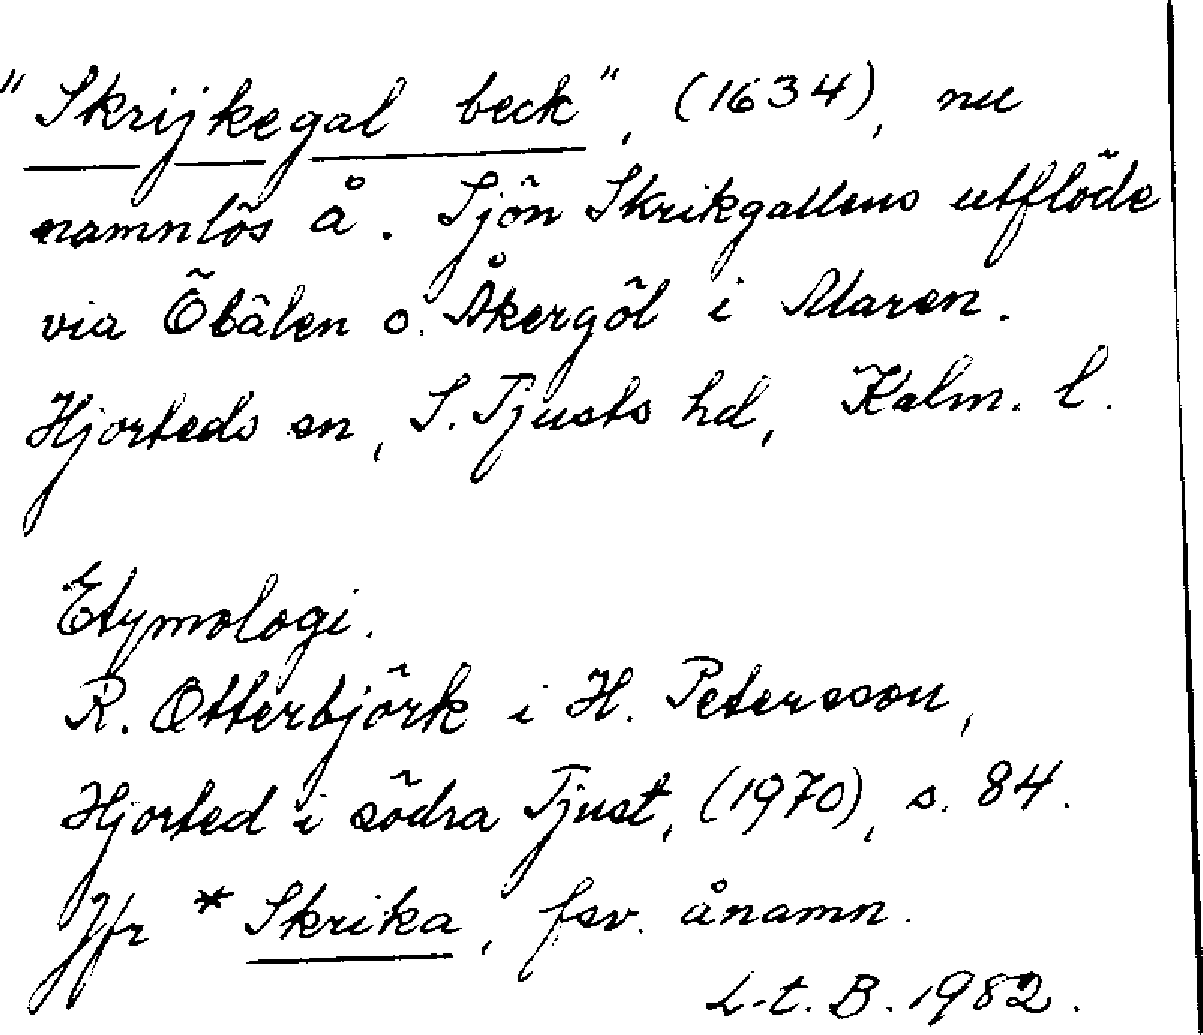 "Skrijkegal beck", (1634), nu
namnlös å. Sjön Skrikgallens utflöde
via Öbälen o. Åkergöl i Maren.
Hjorteds sn, S. Tjusts hd, Kalm. l.
Etymologi.
R. Otterbjörk i H. Petersson,
Hjorted i södra Tjust, (1970), s. 84.
Jfr *Skrika, fsv. ånamn.
L-t. B. 1982.